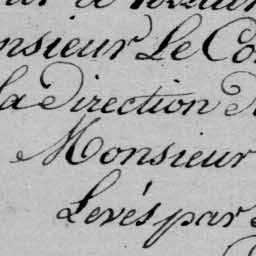 nsieur Le Co
la Direction
Monsieur
Levés par